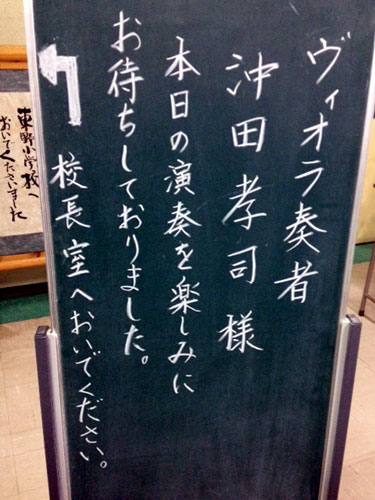 ヴィオラ奏者
沖田孝司様
本日の演奏を楽しみに
お待ちしておりました。
校長室へおいでください。
東野小学校へ
おいでくださいました